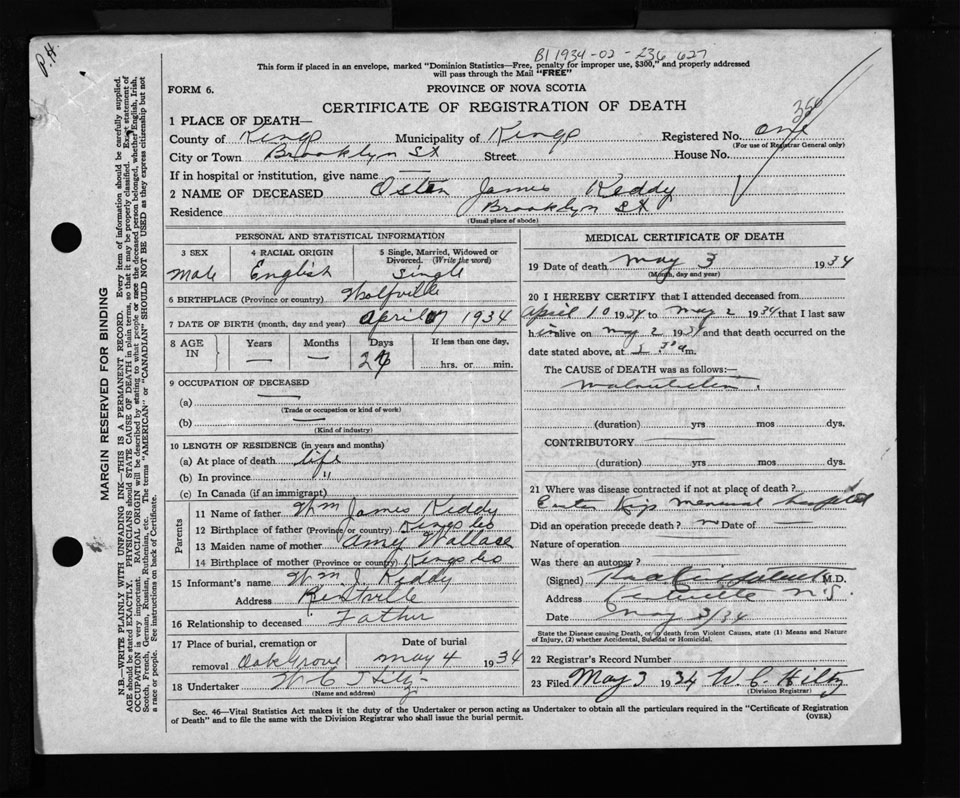 P.H.
B1 1934-02-236 627
This form if placed in an envelope, marked "Dominion Statistics—Free, penalty for improper use, $300," and properly addressed
will pass through the Mail "FREE"
FORM 6.
PROVINCE OF NOVA SCOTIA
CERTIFICATE OF REGISTRATION OF DEATH
1 PLACE OF DEATH—
County of Kings Municipality of Kings Registered No. one
(For use of Registrar General only)
City or Town Brooklyn St Street House No.
If in hospital or institution, give name —
2 NAME OF DECEASED Osten James Keddy
Residence Brooklyn St
(Usual place of abode)
PERSONAL AND STATISTICAL INFORMATION
3 SEX 4 RACIAL ORIGIN 5 Single, Married, Widowed or
Divorced. (Write the word)
Male English Single
6 BIRTHPLACE (Province or country) Wolfville
7 DATE OF BIRTH (month, day and year) April 7 1934
8 AGE IN Years Months Days If less than one day,
— — 26 hrs. or min.
9 OCCUPATION OF DECEASED
(a) —
(Trade or occupation or kind of work)
(b) —
(Kind of industry)
10 LENGTH OF RESIDENCE (in years and months)
(a) At place of death life
(b) In province "
(c) In Canada (if an immigrant)
Parents
11 Name of father Wm James Keddy
12 Birthplace of father (Province or country) Kings Co
13 Maiden name of mother Amy Wallace
14 Birthplace of mother (Province or country) Kings Co
15 Informant's name Wm. J. Keddy
Address Kentville
16 Relationship to deceased Father
17 Place of burial, cremation or Date of burial
removal Oak Grove May 4 1934
18 Undertaker W C Hiltz
(Name and address)
MEDICAL CERTIFICATE OF DEATH
19 Date of death May 3 1934
(Month, day and year)
20 I HEREBY CERTIFY that I attended deceased from
April 10 1934 to May 2 1934 that I last saw
him alive on May 2 1934 and that death occurred on the
date stated above, at m.
The CAUSE OF DEATH was as follows:—
Malnutrition.
(duration) yrs mos dys.
CONTRIBUTORY
(duration) yrs mos dys.
21 Where was disease contracted if not at place of death?
Memorial hospital
Did an operation precede death? no Date of —
Nature of operation
Was there an autopsy?
(Signed) M.D.
Address N.S.
Date May 3/34
State the Disease causing Death, or in death from Violent Causes, state (1) Means and Nature
of Injury, (2) Whether Accidental, Suicidal or Homicidal.
22 Registrar's Record Number
23 Filed May 3 1934 W. C. Hiltz
(Division Registrar)
Sec. 46—Vital Statistics Act makes it the duty of the Undertaker or person acting as Undertaker to obtain all the particulars required in the "Certificate of Registration
of Death" and to file the same with the Division Registrar who shall issue the burial permit.
(OVER)
MARGIN RESERVED FOR BINDING
N.B.—WRITE PLAINLY WITH UNFADING INK—THIS IS A PERMANENT RECORD. Every item of information should be carefully supplied.
AGE should be stated EXACTLY. PHYSICIANS should STATE CAUSE OF DEATH in plain terms, so that it may be properly classified. Exact statement of
OCCUPATION is very important. RACIAL ORIGIN will be described by stating to what people or race the deceased person belonged, whether English, Irish,
Scotch, French, German, Russian, Ruthenian, etc. The terms "AMERICAN" or "CANADIAN" SHOULD NOT BE USED as they express citizenship but not
a race or people. See instructions on back of Certificate.